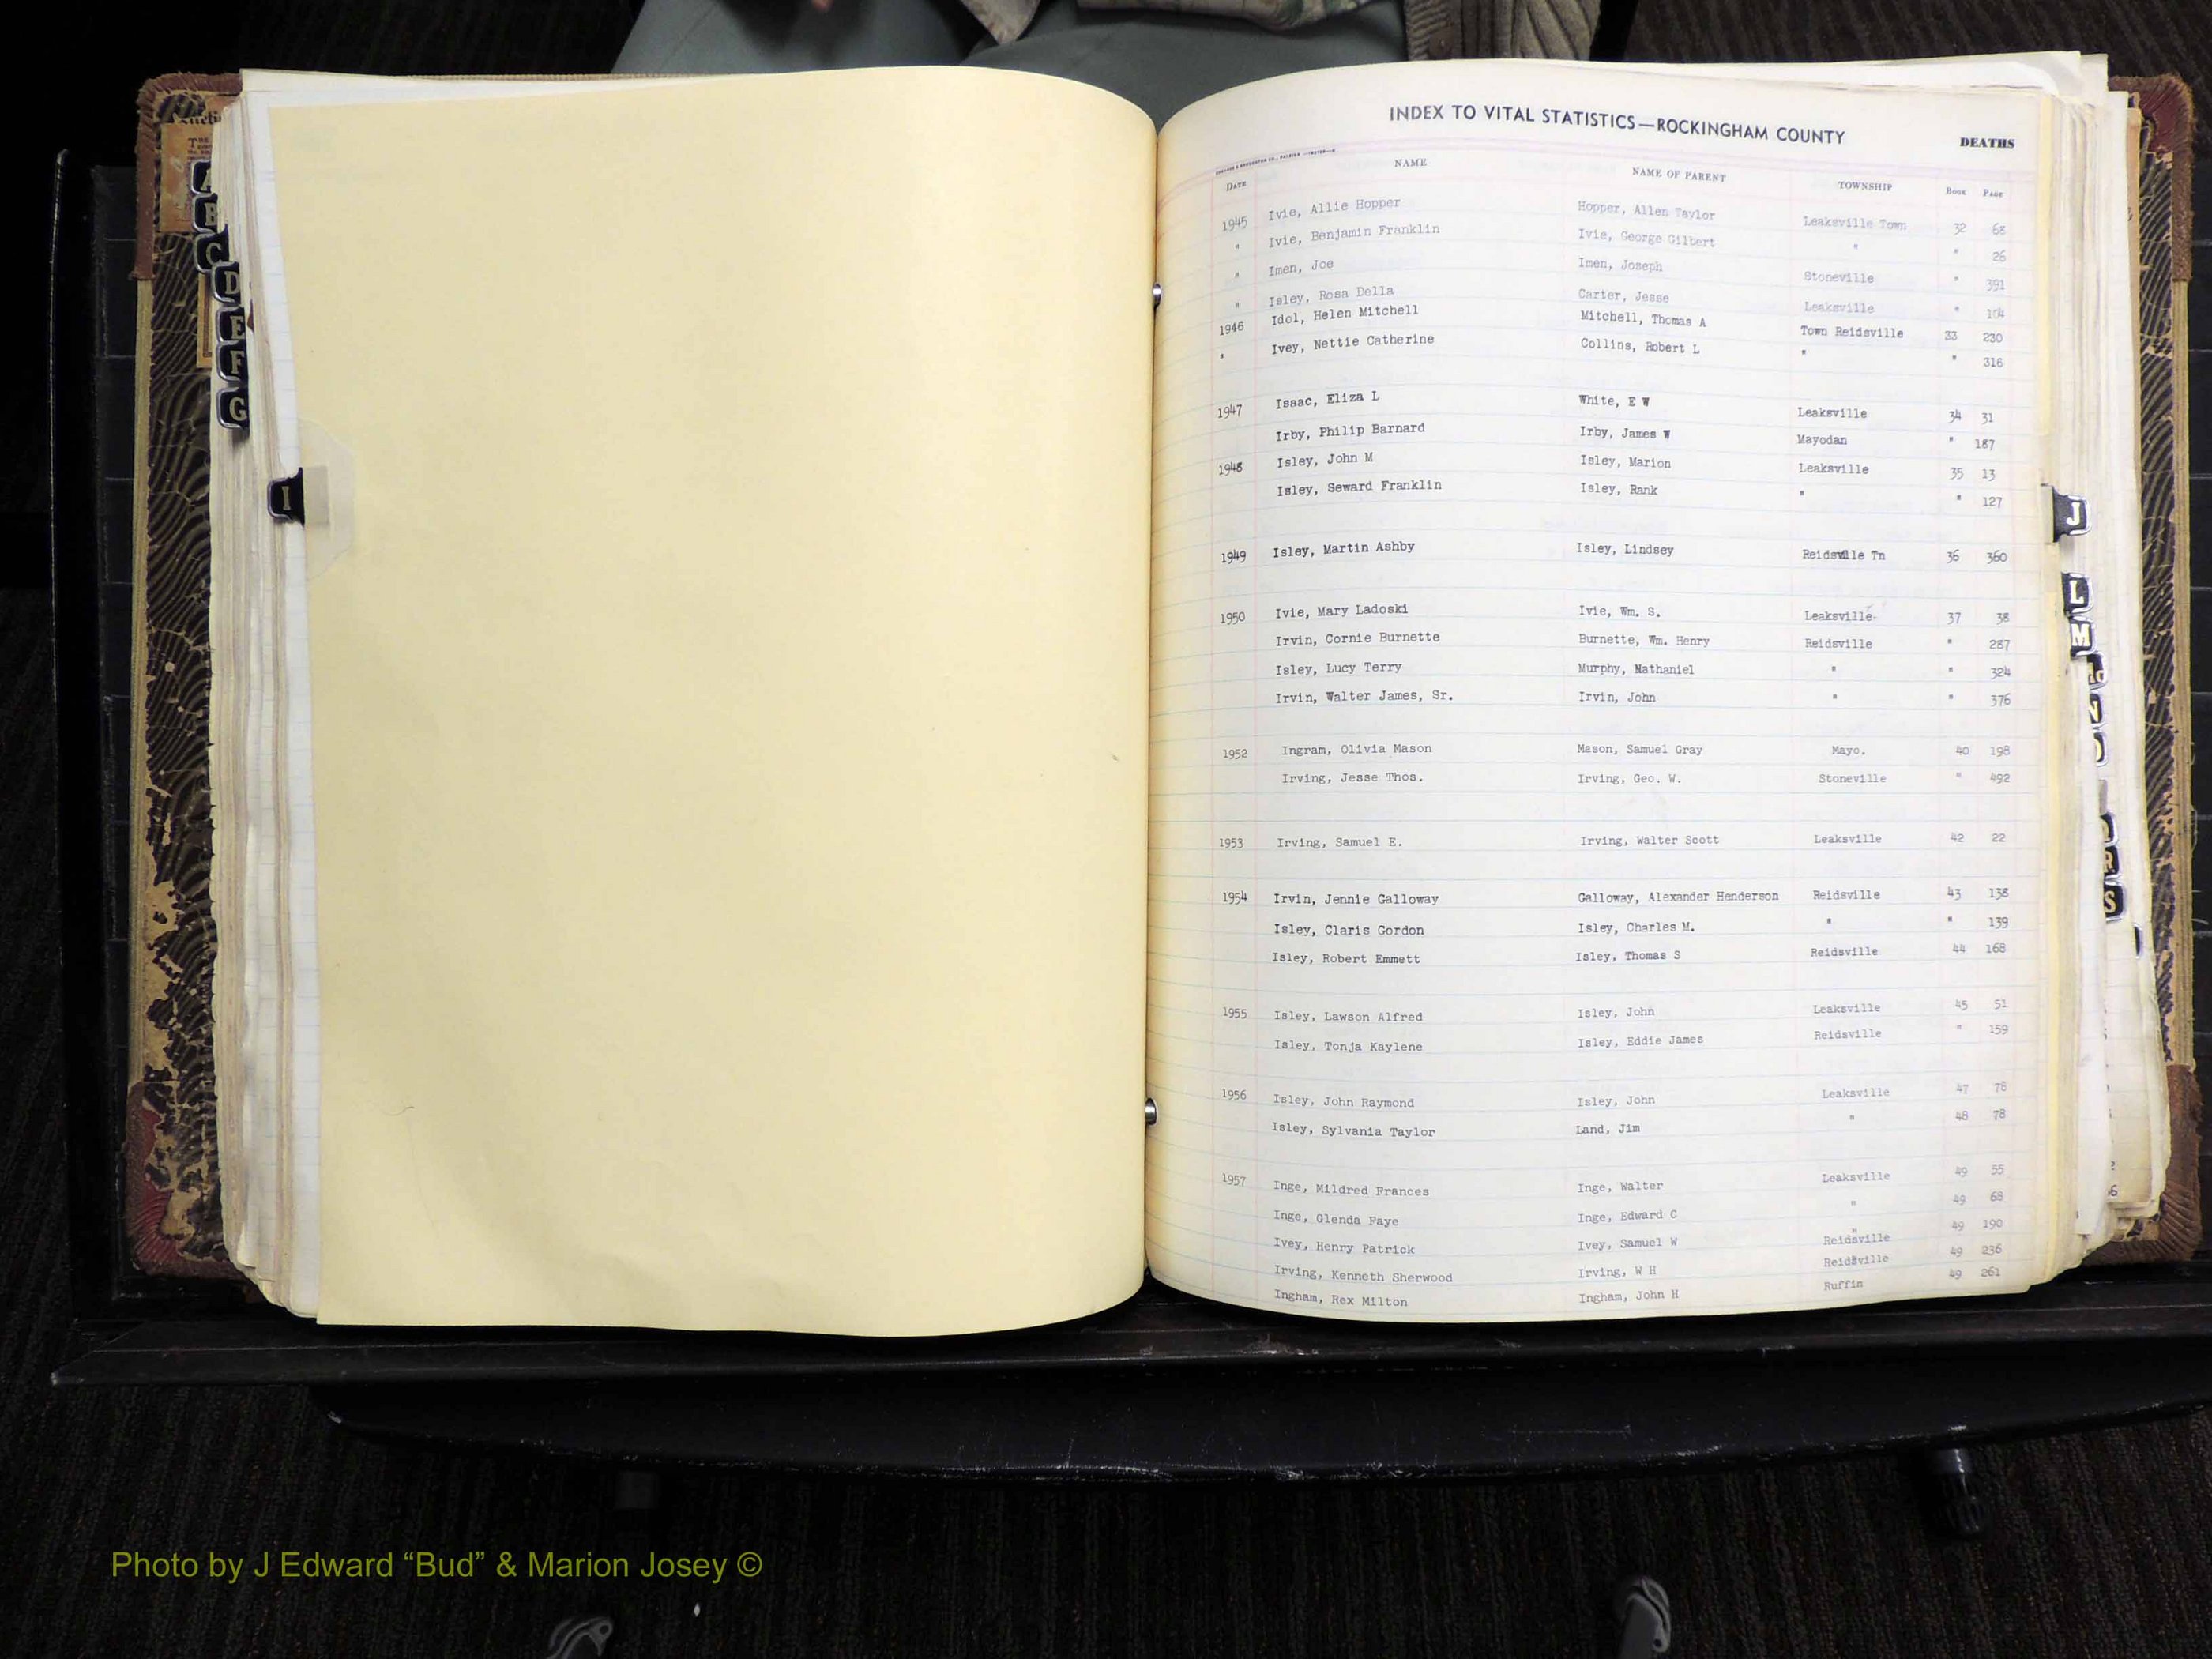 INDEX TO VITAL STATISTICS—ROCKINGHAM COUNTY DEATHS
DATE NAME NAME OF PARENT TOWNSHIP BOOK PAGE
1945 Ivie, Allie Hopper Hopper, Allen Taylor Leaksville Town 32 68
" Ivie, Benjamin Franklin Ivie, George Gilbert " " 26
" Imen, Joe Imen, Joseph Stoneville " 391
" Isley, Rosa Della Carter, Jesse Leaksville " 104
1946 Idol, Helen Mitchell Mitchell, Thomas A Town Reidsville 33 230
" Ivey, Nettie Catherine Collins, Robert L " " 316
1947 Isaac, Eliza L White, E W Leaksville 34 31
Irby, Philip Barnard Irby, James W Mayodan " 187
1948 Isley, John M Isley, Marion Leaksville 35 13
Isley, Seward Franklin Isley, Rank " " 127
1949 Isley, Martin Ashby Isley, Lindsey Reidsville Tn 36 360
1950 Ivie, Mary Ladoski Ivie, Wm. S. Leaksville- 37 38
Irvin, Cornie Burnette Burnette, Wm. Henry Reidsville " 287
Isley, Lucy Terry Murphy, Nathaniel " " 324
Irvin, Walter James, Sr. Irvin, John " " 376
1952 Ingram, Olivia Mason Mason, Samuel Gray Mayo. 40 198
Irving, Jesse Thos. Irving, Geo. W. Stoneville " 492
1953 Irving, Samuel E. Irving, Walter Scott Leaksville 42 22
1954 Irvin, Jennie Galloway Galloway, Alexander Henderson Reidsville 43 138
Isley, Claris Gordon Isley, Charles M. " " 139
Isley, Robert Emmett Isley, Thomas S Reidsville 44 168
1955 Isley, Lawson Alfred Isley, John Leaksville 45 51
Isley, Tonja Kaylene Isley, Eddie James Reidsville " 159
1956 Isley, John Raymond Isley, John Leaksville 47 78
Isley, Sylvania Taylor Land, Jim " 48 78
1957 Inge, Mildred Frances Inge, Walter Leaksville 49 55
Inge, Glenda Faye Inge, Edward C " 49 68
Ivey, Henry Patrick Ivey, Samuel W " Reidsville 49 190
Irving, Kenneth Sherwood Irving, W H Reidsville 49 236
Ingham, Rex Milton Ingham, John H Ruffin 49 261
A
B
C
D
E
F
G
I
J
L
M
N
O
R
S
Photo by J Edward “Bud” & Marion Josey ©